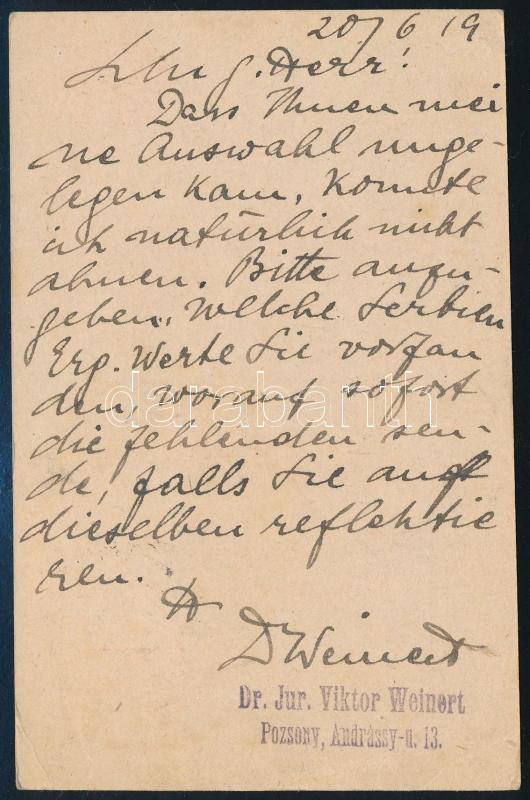 20/6 19
Sehr g. Herr!
Dass Ihnen mei
ne Auswahl unge-
legen kam, konnte
ich natürlich nicht
ahnen. Bitte anzu-
geben, welche Serbien
Erg. Werte Sie vorfan
den, worauf sofort
die fehlenden sen-
de, falls Sie auf
dieselben reflektie
ren.
DWeinert
Dr. Jur. Viktor Weinert
Pozsony, Andrássy-u. 13.
darabanth